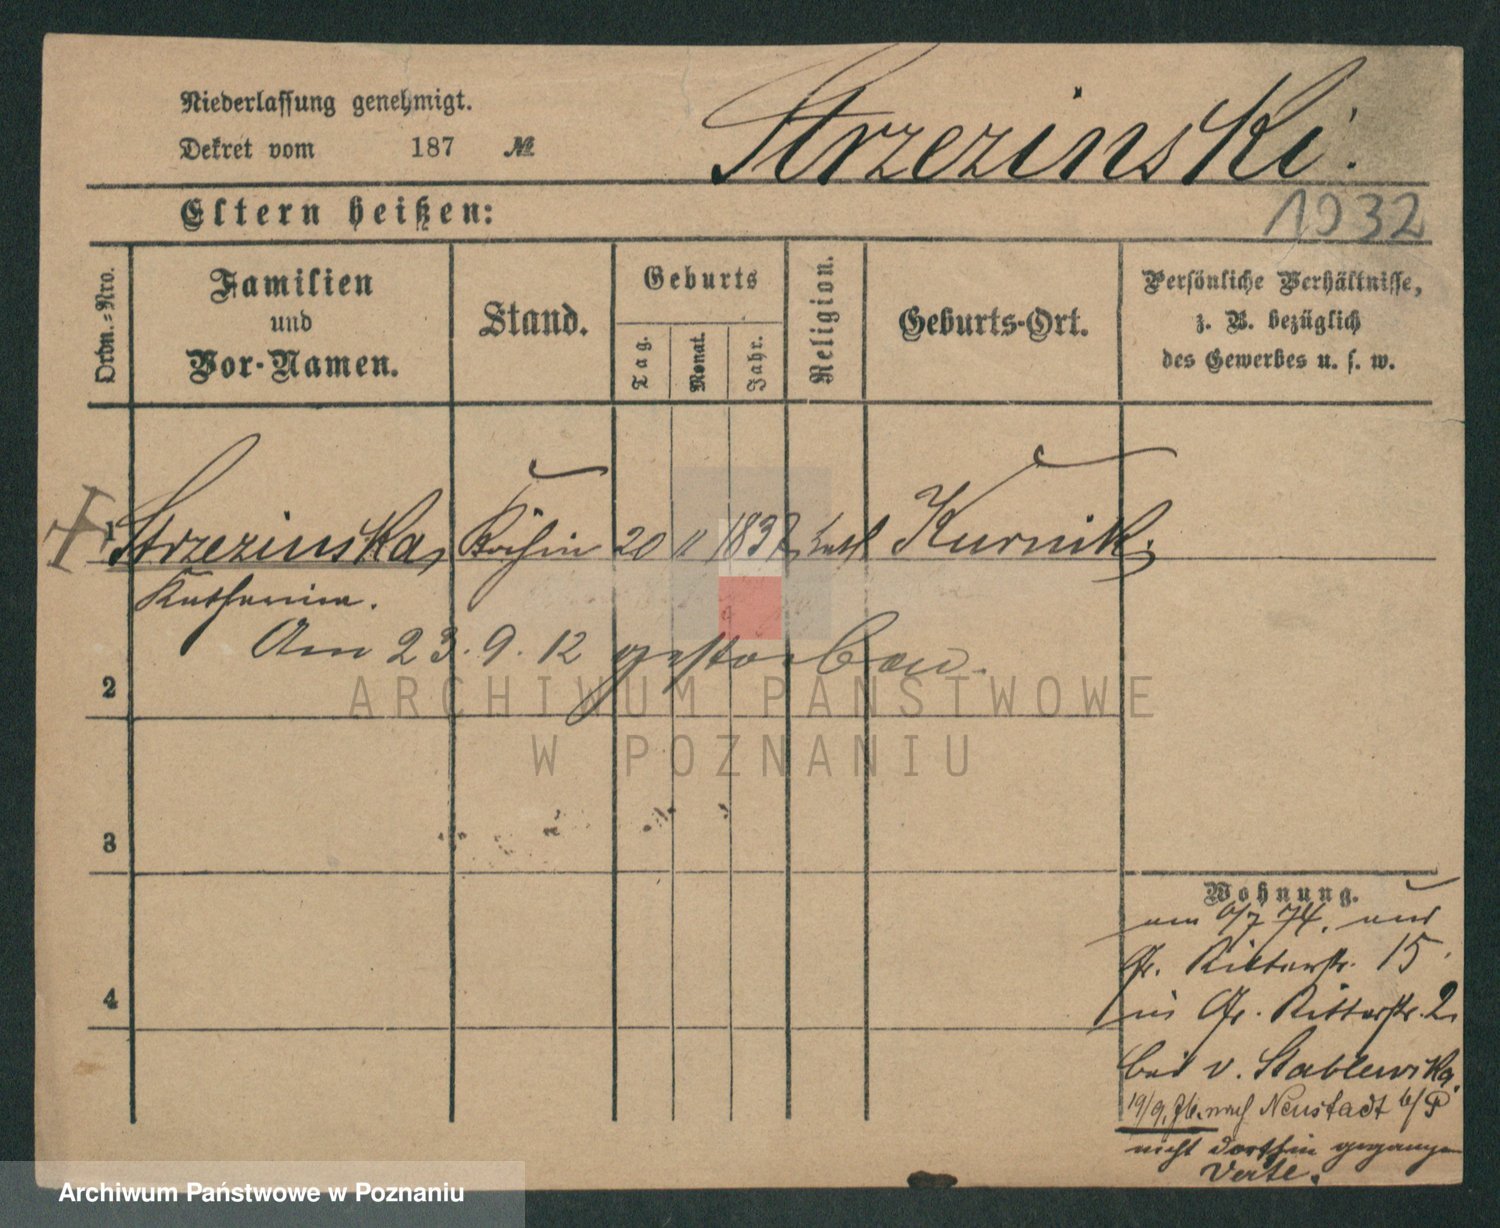 Niederlassung genehmigt.
Dekret vom 187 №
Strzezinski.
Eltern heißen:
1932
Ordn.-Nro.
Familien
und
Vor-Namen.
Stand.
Geburts
Tag.
Monat.
Jahr.
Religion.
Geburts-Ort.
Persönliche Verhältnisse,
z. B. bezüglich
des Gewerbes u. s. w.
1 Strzezinska, Köchin 20 11 1832 kath Kurnik.
Katharina.
Am 23. 9. 12 gestorben.
2
ARCHIWUM PAŃSTWOWE
W POZNANIU
3
4
Wohnung.
am 6/7 74. aus
Gr. Ritterstr. 15.
in Gr. Ritterstr. 2.
bei v. Stablewska.
19/9. 76. nach Neustadt b/P
nicht dorthin gegangen
Archiwum Państwowe w Poznaniu